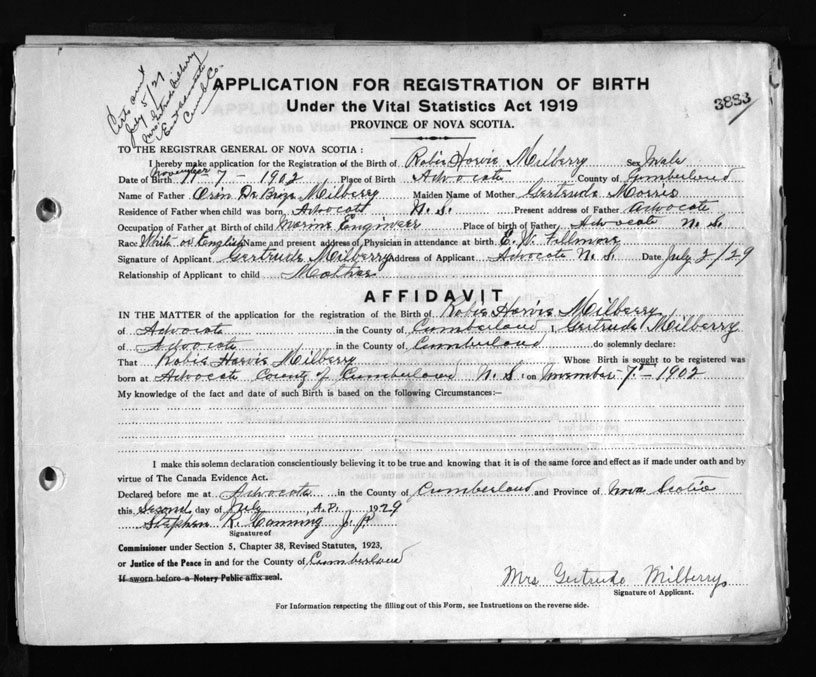 Cert. sent
July 5/29
Mrs. Gertrude Milberry
Advocate
Cumb. Co.
APPLICATION FOR REGISTRATION OF BIRTH
Under the Vital Statistics Act 1919
3883
PROVINCE OF NOVA SCOTIA.
TO THE REGISTRAR GENERAL OF NOVA SCOTIA :
I hereby make application for the Registration of the Birth of Robie Harvie Milberry Sex Male
November
Date of Birth 11-7-1902 Place of Birth Advocate County of Cumberland
Name of Father Orin De Milberry Maiden Name of Mother Gertrude Morris
Residence of Father when child was born Advocate N. S. Present address of Father Advocate
Occupation of Father at Birth of child Marine Engineer Place of birth of Father Advocate N. S.
Race White or English Name and present address of Physician in attendance at birth E. W. Fillmore
Signature of Applicant Gertrude Milberry Address of Applicant Advocate N. S. Date July 2/29
Relationship of Applicant to child Mother
AFFIDAVIT
IN THE MATTER of the application for the registration of the Birth of Robie Harvie Milberry
of Advocate in the County of Cumberland I, Gertrude Milberry
of Advocate in the County of Cumberland do solemnly declare:
That Robie Harvie Milberry Whose Birth is sought to be registered was
born at Advocate County of Cumberland N. S. on November 7th 1902
My knowledge of the fact and date of such Birth is based on the following Circumstances:—
I make this solemn declaration conscientiously believing it to be true and knowing that it is of the same force and effect as if made under oath and by
virtue of The Canada Evidence Act.
Declared before me at Advocate in the County of Cumberland and Province of Nova Scotia
this Second day of July, A.D. 1929
Stephen K. Canning J. P.
Signature of
Commissioner under Section 5, Chapter 38, Revised Statutes, 1923,
or Justice of the Peace in and for the County of Cumberland
If sworn before a Notary Public affix seal.
Mrs Gertrude Milberry
Signature of Applicant.
For Information respecting the filling out of this Form, see Instructions on the reverse side.